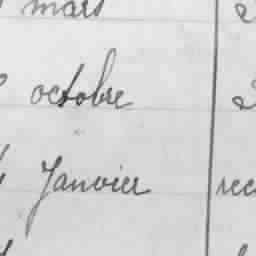 mars
octobre
Janvier